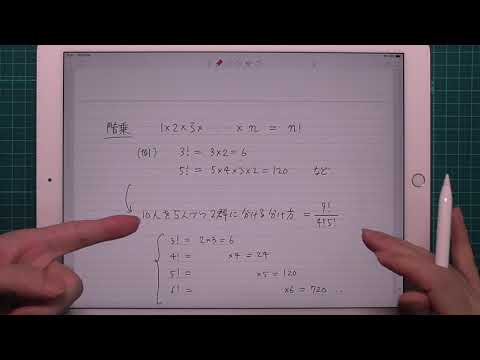 階乗 1×2×3× ‥‥ × n = n!
(例) 3! = 3×2 = 6
5! = 5×4×3×2 = 120 など
10人を5人づつ2群に分ける分け方 = 9!/4!5!
3! = 2×3 = 6
4! = ×4 = 24
5! = ×5 = 120
6! = ×6 = 720 ‥